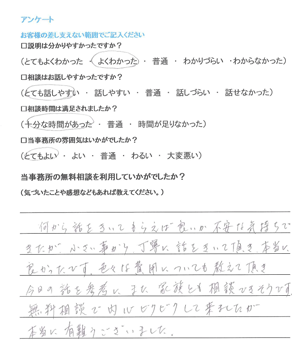 アンケート
お客様の差し支えない範囲でご記入ください
□説明は分かりやすかったですか？
（とてもよくわかった ・ よくわかった ・ 普通 ・ わかりづらい ・ わからなかった）
□相談はお話しやすかったですか？
（とても話しやすい ・ 話しやすい ・ 普通 ・ 話しづらい ・ 話せなかった）
□相談時間は満足されましたか？
（十分な時間があった ・ 普通 ・ 時間が足りなかった）
□当事務所の雰囲気はいかがでしたか？
（とてもよい ・ よい ・ 普通 ・ わるい ・ 大変悪い）
当事務所の無料相談を利用していかがでしたか？
（気づいたことや感想などもあれば教えてください。）
何から話をきいてもらえば良いか不安な気持ちで
きたが 小さい事から丁寧に話をきいて頂き 本当に
良かったです。色々な費用についても教えて頂き
今日の話を参考に、また 家族とも相談できそうです
無料相談で内心ビクビクして来ましたが
本当に有難うございました。